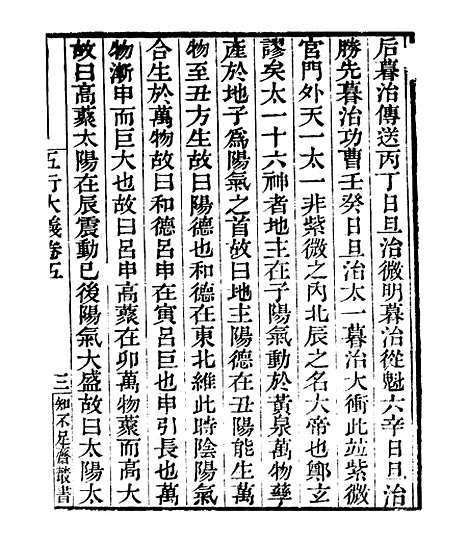 后暮治傳送丙丁日旦治徵明暮治從魁六辛日旦治
勝先暮治功曹壬癸日旦治太一暮治大衝此竝紫微
官門外天一太一非紫微之內北辰之名大帝也鄭玄
謬矣太一十六神者地主在子陽氣動於黃泉萬物孳
產於地子爲陽氣之首故曰地主陽德在丑陽能生萬
物至丑方生故曰陽德也和德在東北維此時陰陽氣
合生於萬物故曰和德呂申在寅呂巨也申引長也萬
物漸申而巨大也故曰呂申高藂在卯萬物藂而高大
故曰高藂太陽在辰震動已後陽氣大盛故曰太陽太
五行大義卷五
三
知不足齋叢書